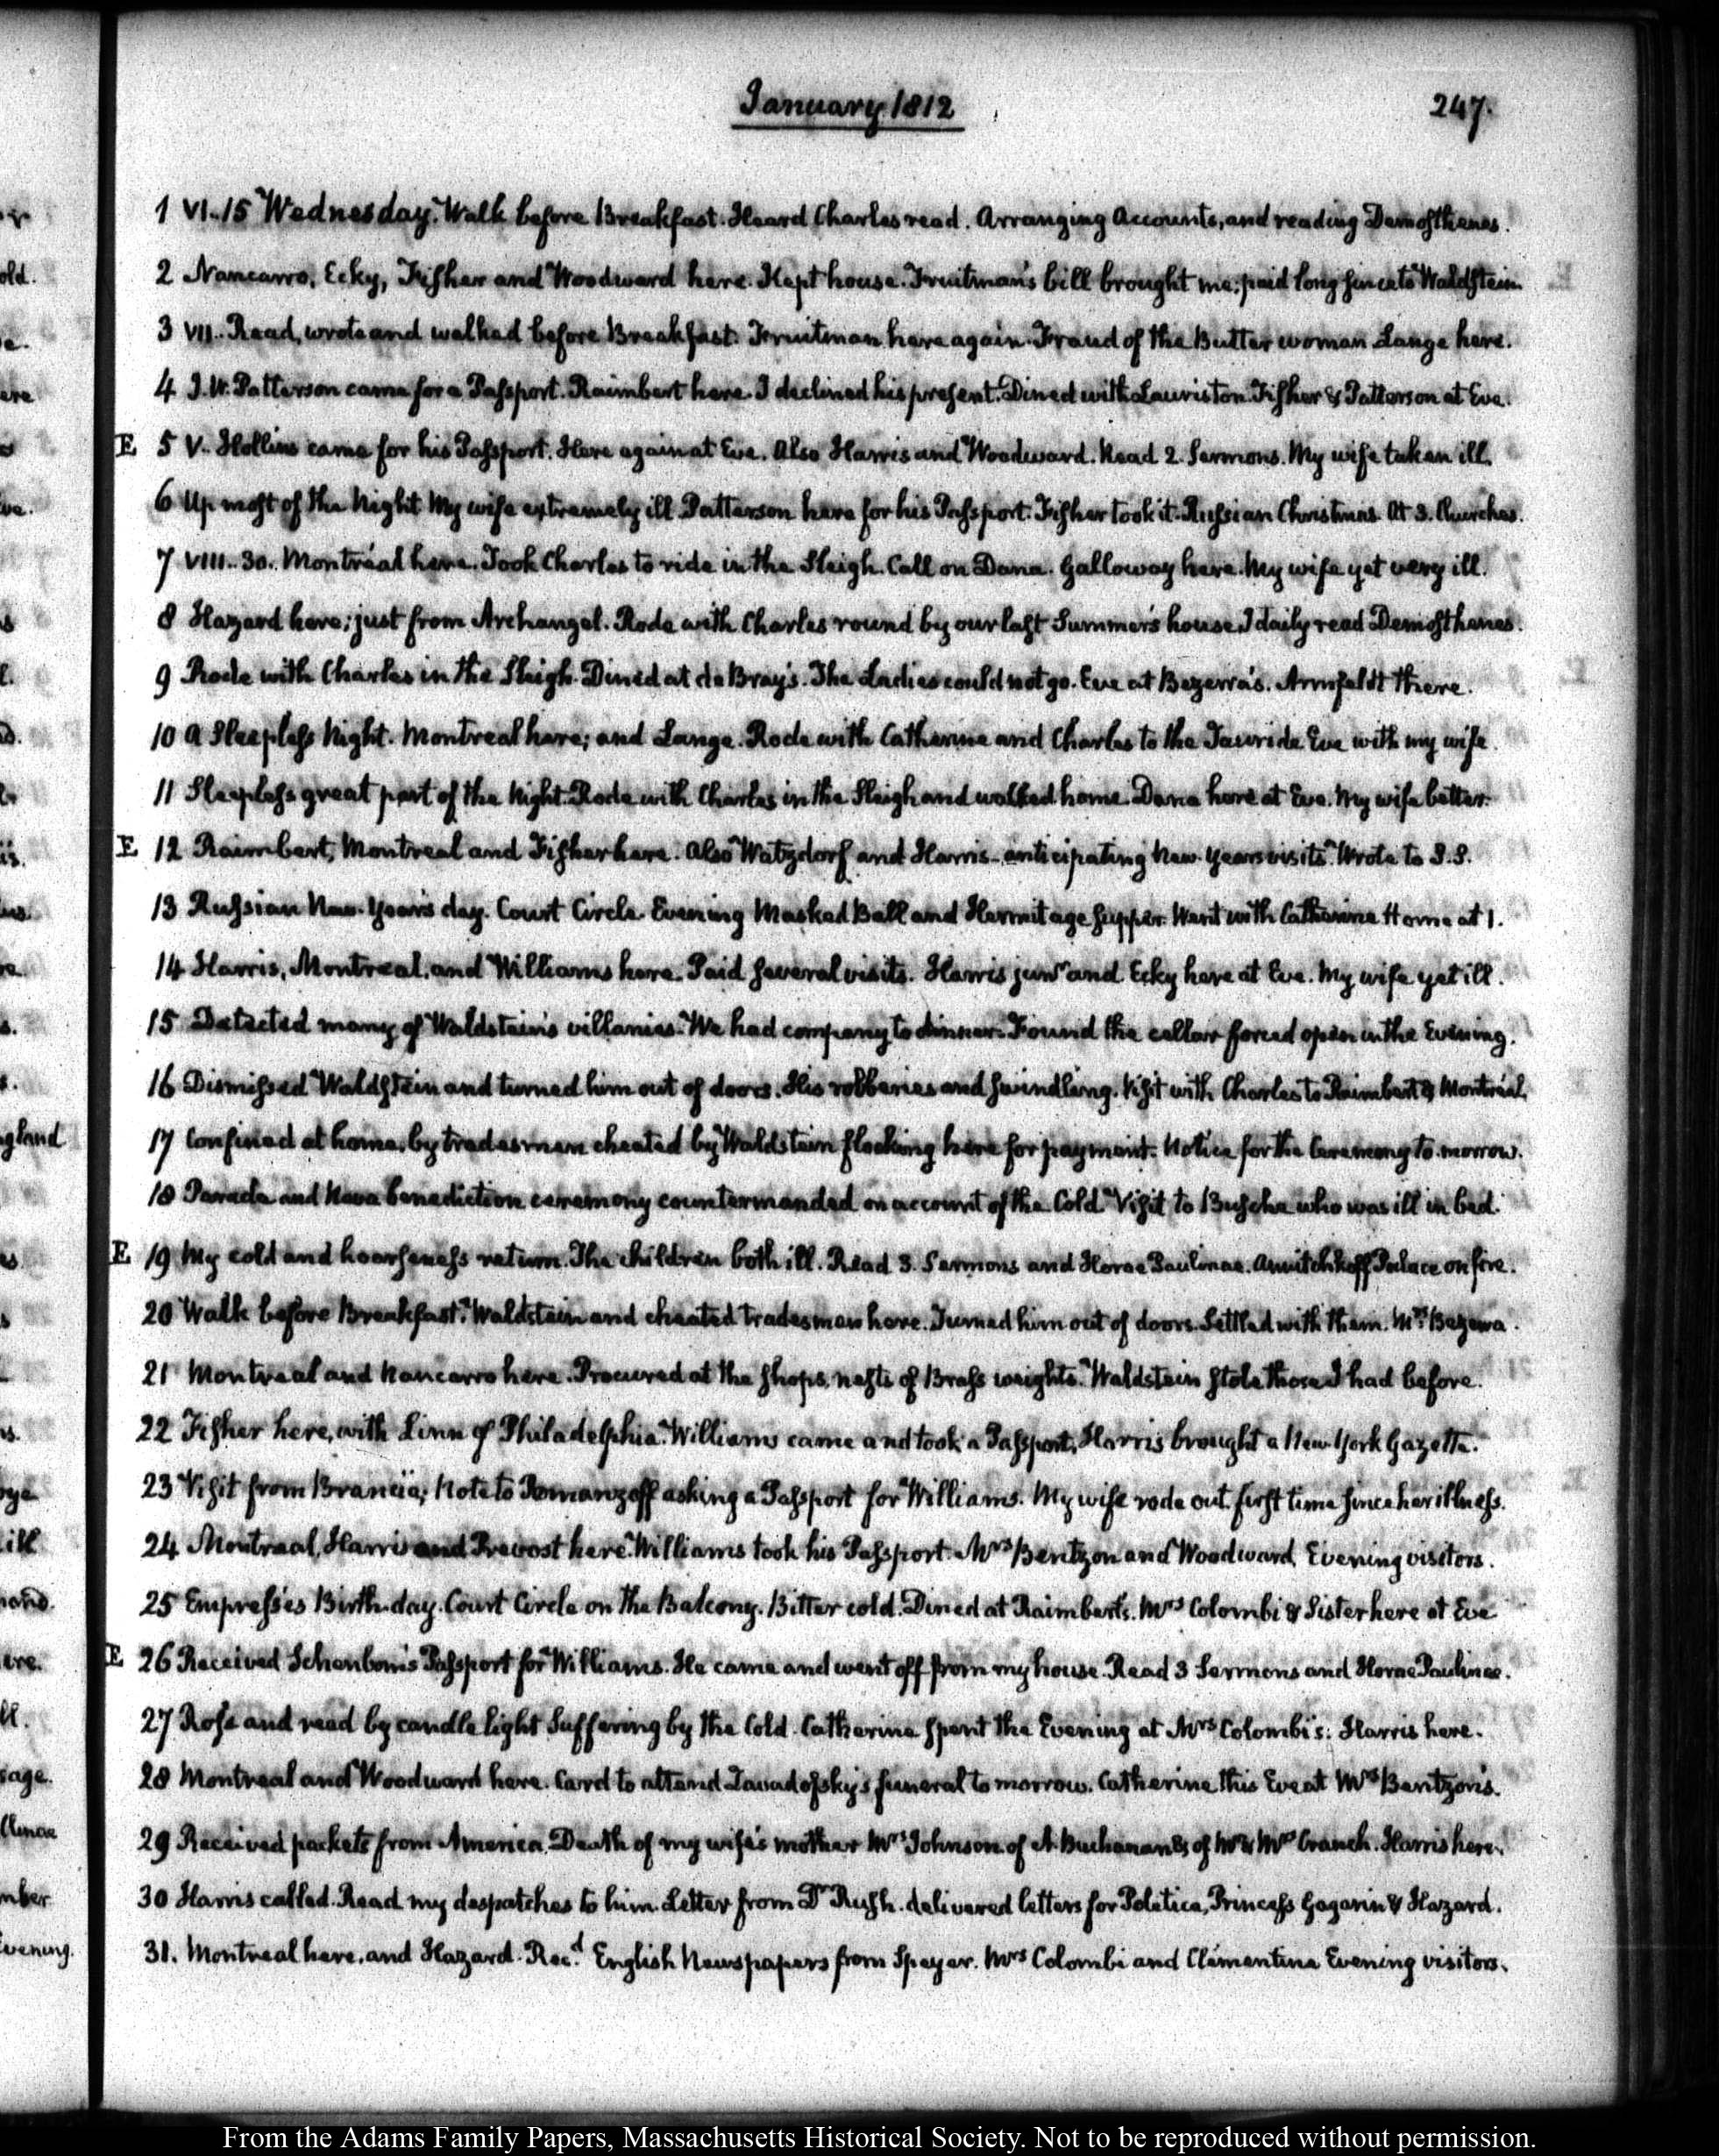 January 1812
247.
1 VI..15 Wednesday. Walk before Breakfast. Heard Charles read. Arranging Accounts, and reading Demosthenes.
2 Nancarro, Ecky, Fisher and Woodward here. Kept house. Fruitman's bill brought me; paid long since to Waldstein.
3 VII.. Read, wrote and walked before Breakfast. Fruitman here again. Fraud of the Butter woman Lange here.
4 J. W. Patterson came for a Passport. Raimbert here. I declined his present. Dined with Lauriston. Fisher & Patterson at Eve.
E 5 V.. Hollins came for his Passport. Here again at Eve. Also Harris and Woodward. Read 2. Sermons. My wife taken ill.
6 Up most of the Night. My wife extremely ill. Patterson here for his Passport. Fisher took it. Russian Christmas. At 3. Churches.
7 VIII..30.. Montréal here. Took Charles to ride in the Sleigh. Call on Dana. Galloway here. My wife yet very ill.
8 Hazard here; just from Archangel. Rode with Charles round by our last Summer's house. I daily read Demosthenes.
9 Rode with Charles in the Sleigh. Dined at de Bray's. The Ladies could not go. Eve at Bezerra's. Armfeldt there.
10 A Sleepless Night. Montreal here; and Lange. Rode with Catherine and Charles to the Tauride. Eve with my wife.
11 Sleepless great part of the Night. Rode with Charles in the Sleigh and walked home. Dana here at Eve. My wife better.
E 12 Raimbert, Montreal and Fisher here. Also Watzdorf and Harris - anticipating New-Years visits. Wrote to S.S.
13 Russian New-Year's day. Court Circle. Evening Masked Ball and Hermitage Supper. Went with Catherine Home at 1.
14 Harris, Montreal, and Williams here. Paid several visits. Harris junr. and Ecky here at Eve. My wife yet ill.
15 Detected many of Waldstein's villanies. We had company to dinner. Found the cellar forced open in the Evening.
16 Dismissed Waldstein and turned him out of doors. His robberies and swindling. Visit with Charles to Raimbert & Montréal.
17 Confined at home, by tradesmen cheated by Waldstein flocking here for payment. Notice for the Ceremony to-morrow.
18 Parade and Neva benediction ceremony countermanded on account of the Cold. Visit to Busche who was ill in bed.
E 19 My cold and hoarseness return. The children both ill. Read 3. Sermons and Horae Paulinae. Annitchkoff Palace on fire.
20 Walk before Breakfast. Waldstein and cheated tradesmen here. Turned him out of doors. Settled with them. Mrs. Bezerra.
21 Montreal and Nancarro here. Procured at the shops, nests of Brass weights. Waldstein stole those I had before.
22 Fisher here, with Linn of Philadelphia. Williams came and took a Passport, Harris brought a New-York Gazette.
23 Visit from Brancia; Note to Romanzoff asking a Passport for Williams. My wife rode out first time since her illness.
24 Montreal, Harris and Prevost here. Williams took his Passport. Mrs Bentzon and Woodward, Evening visitors.
25 Empress's Birth-day. Court Circle on the Balcony. Bitter cold. Dined at Raimbert's. Mrs Colombi & Sister here at Eve
E 26 Received Schenbom's Passport for Williams. He came and went off from my house. Read 3 Sermons and Horae Paulinae.
27 Rose and read by candle light Suffering by the Cold. Catherine spent the Evening at Mrs Colombi's: Harris here.
28 Montreal and Woodward here. Card to attend Zavadofsky's funeral to morrow. Catherine this Eve at Mrs Bentzon's.
29 Received packets from America. Death of my wife's mother Mrs Johnson. of A. Buchanan & of Mr & Mrs Cranch. Harris here.
30 Harris called. Read my despatches to him. Letter from Dr Rush. delivered letters for Poletica, Princess Gagarin & Hazard.
31. Montreal here, and Hazard. Recd. English Newspapers from Speyer. Mrs Colombi and Clementina Evening visitors.
From the Adams Family Papers, Massachusetts Historical Society. Not to be reproduced without permission.